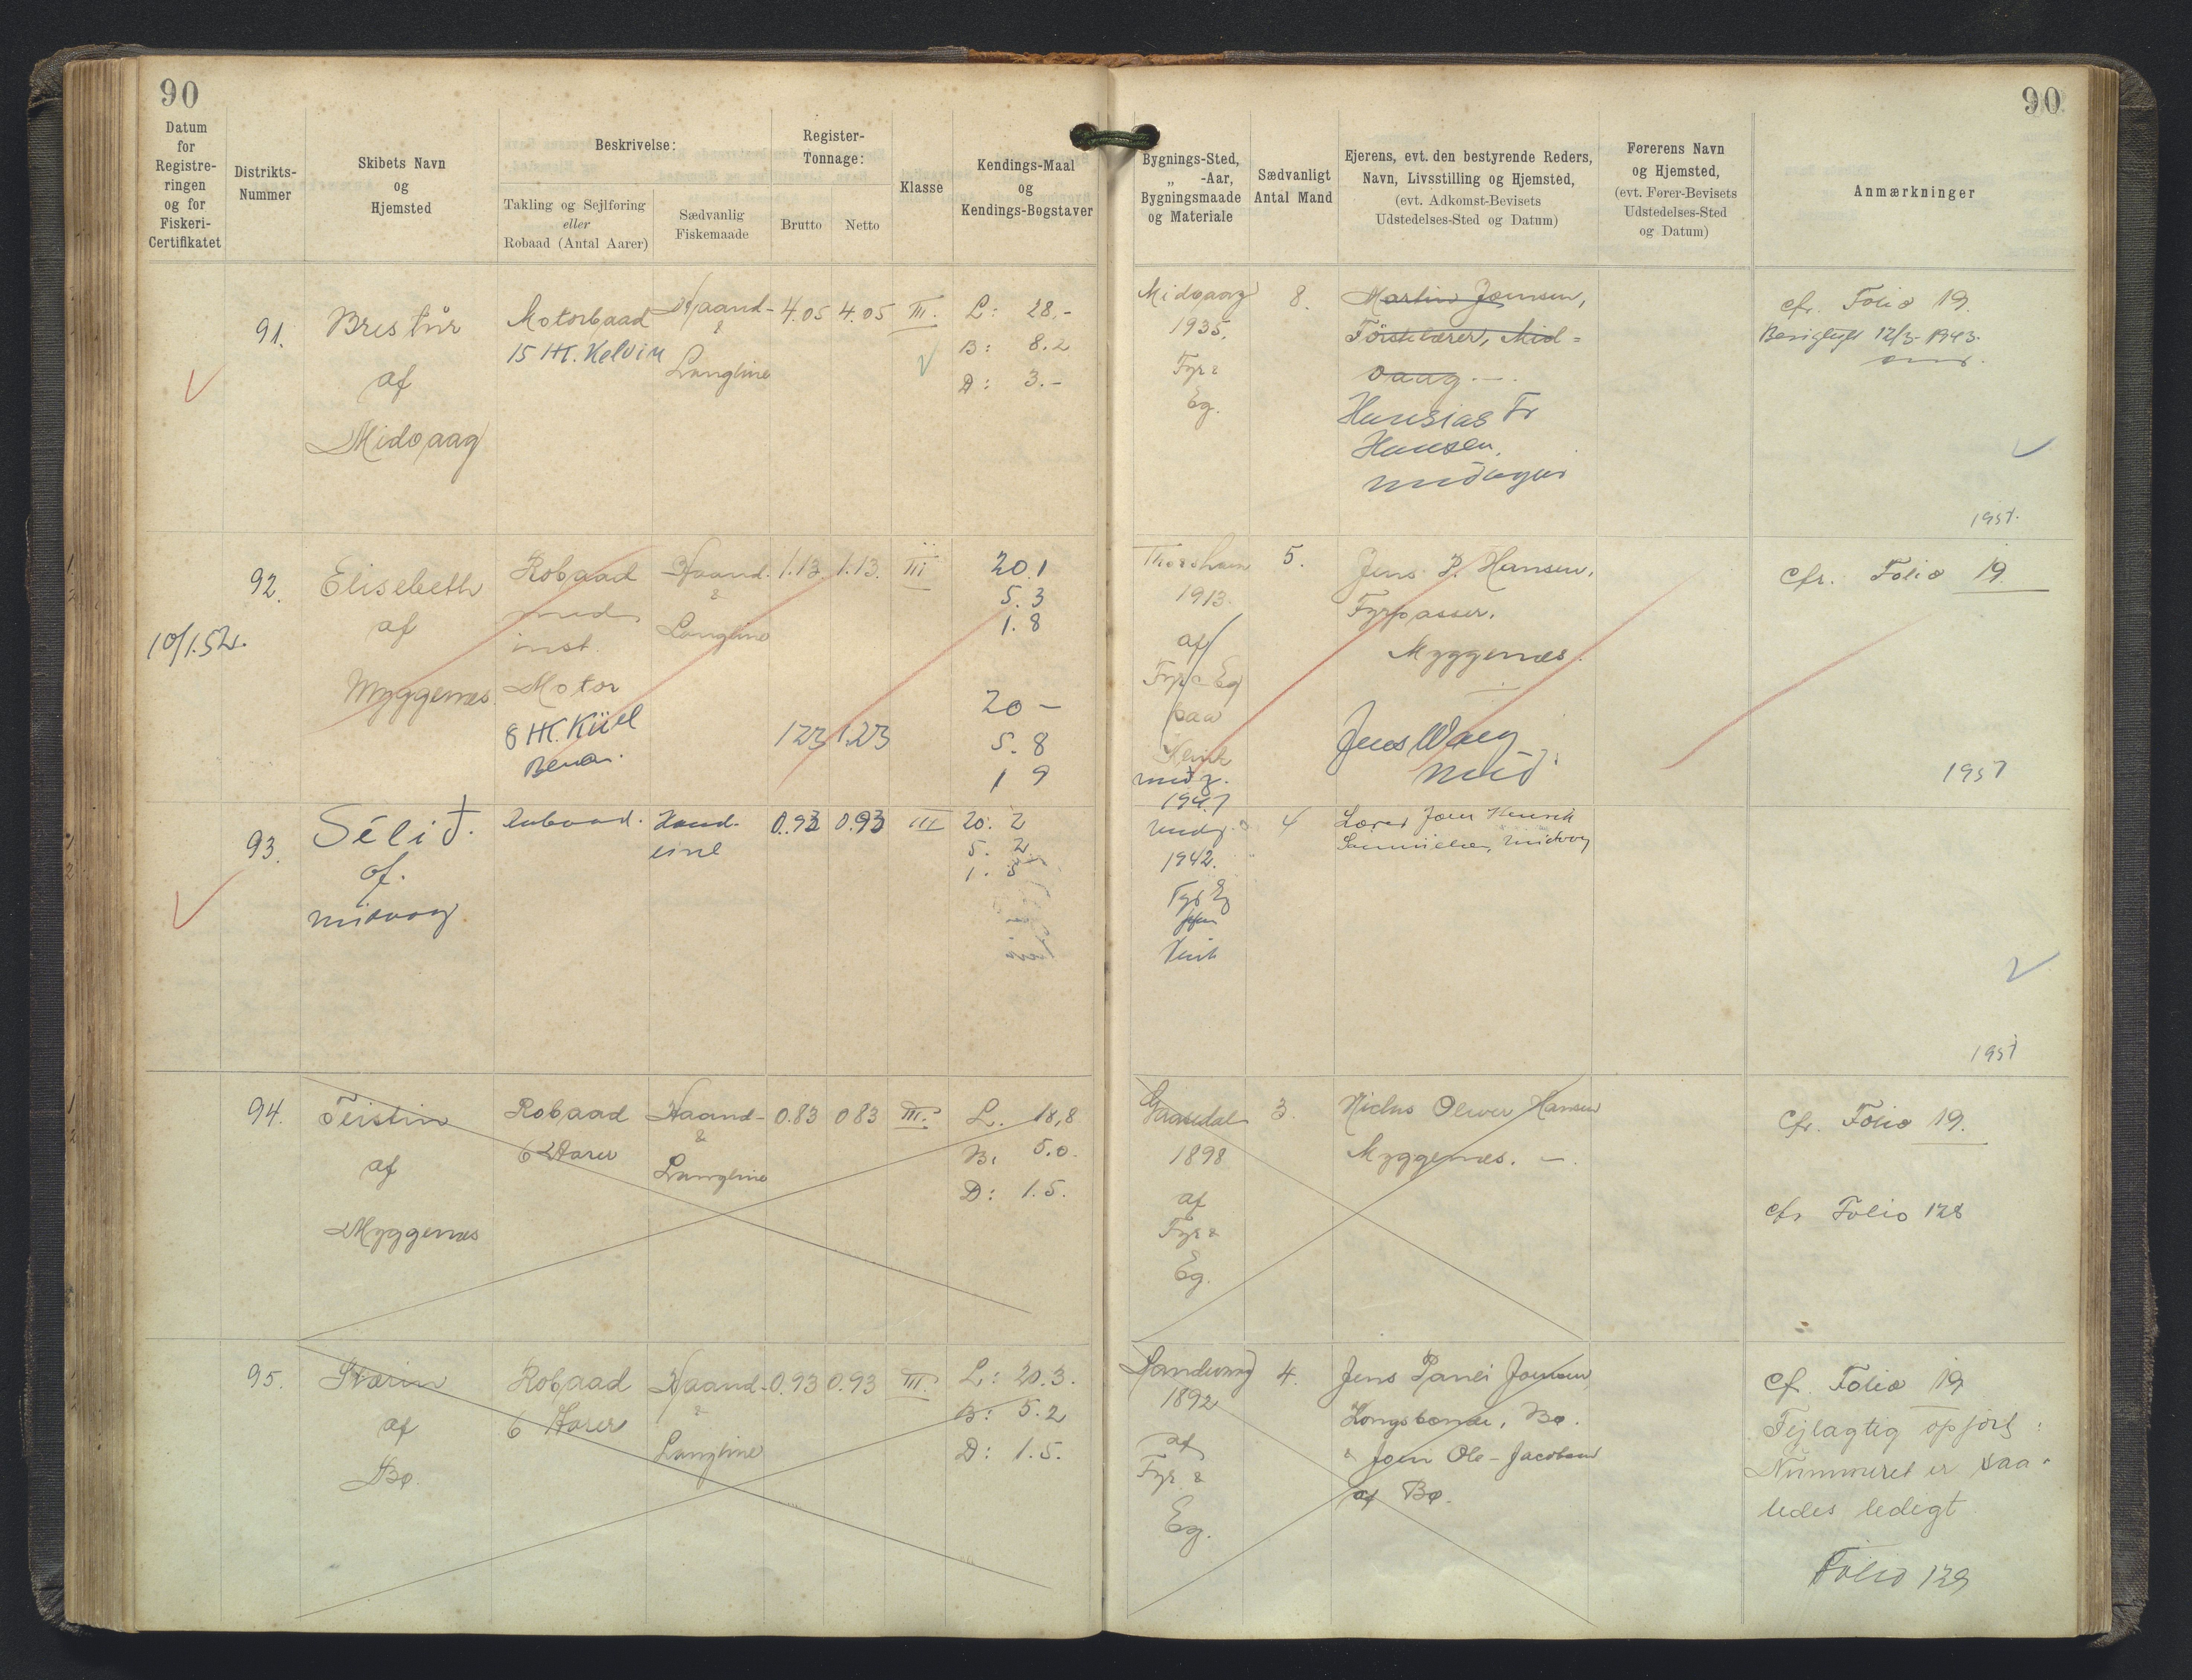 90
90
Datum
for
Registre-
ringen
og for
Fiskeri-
Certifikatet
Distrikts-
Nummer
Skibets Navn
og
Hjemsted
Beskrivelse:
Takling og Sejlføring
eller
Robaad (Antal Aarer)
Sædvanlig
Fiskemaade
Register-
Tonnage:
Brutto
Netto
Klasse
Kendings-Maal
og
Kendings-Bogstaver
Bygnings-Sted,
„ -Aar,
Bygningsmaade
og Materiale
Sædvanligt
Antal Mand
Ejerens, evt. den bestyrende Reders,
Navn, Livsstilling og Hjemsted,
(evt. Adkomst-Bevisets
Udstedelses-Sted og Datum)
Førerens Navn
og Hjemsted,
(evt. Fører-Bevisets
Udstedelses-Sted
og Datum)
Anmærkninger
91.
Bristur
af
Midvaag
Motorbaad
15 HK. Kelvin
Haand-
&
Langline
4.05
4.05
III.
L: 28.-
B: 8.2
D: 3.-
Midvaag
1935.
Fyr &
Eg.
8.
Martin Joensen,
Førstelærer, Mid-
vaag.-.
Hansias Fr
Hansen,
cfr. Folio 19.
12/3-1943.
1951.
10/1.52.
92.
Elisebeth
af
Myggenæs.
Robaad
med
inst.
Motor
8 HK.
Haand-
&
Langline
1.13
1.13.
III
20.1
5.3
1.8
1.23
1.23
20 -
5.8
1 9
Thorshavn
1913.
af
Fyr & Eg
paa
1947
5.
Jens P. Hansen,
Fyrpasser.
Myggenæs.
Jens
cfr. Folio 19.
1951
93.
Sélið.
af.
Midvaag
Robaad.
Haand-
line
0.93
0.93
III
20. 2
5. 2
1. 5
1942.
4
Lærer Joen
cfr. Folio 19.
1951
94.
Teistin
af
Myggenæs
Robaad
6 Aarer
Haand-
&
Langline
0.83
0 83
III.
L. 18,8
B. 5.0.
D: 1.5.
Gaasedal
1898
af
Fyr &
Eg.
3.
Niclas Oliver Hansen
Myggenæs. -.
Cfr. Folio 19.
cfr Folio 128
95.
af
Bø.
Robaad
6 Aarer
Haand-
&
Langline
0.93
0.93
III.
L: 20.3.
B: 5.2
D: 1.5.
Sandevaag
1892
af
Fyr &
Eg.
4.
Jens Pauli Joensen
Kongsbonde, Bø.
& Joen Ole-Jacobsen
af Bø.
cf. Folio 19
Fejlagtig opført:
Nummeret er saa-
ledes ledigt
Folio 129